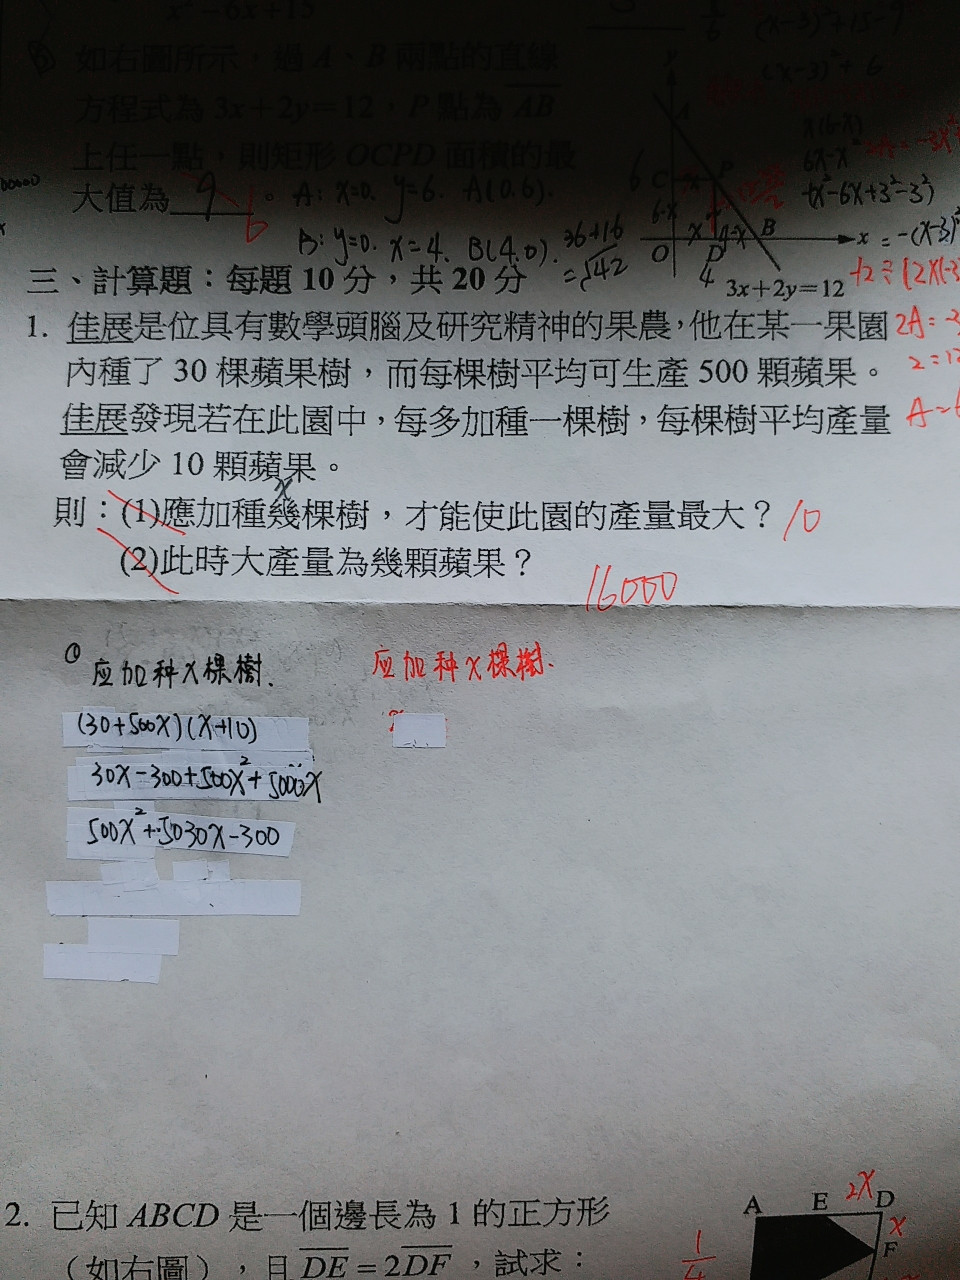 x² − 6x + 15
如右圖所示，過 A、B 兩點的直線
方程式為 3x＋2y＝12，P 點為 AB
上任一點，則矩形 OCPD 面積的最
大值為 9 。 6
A: x=0. y=6. A(0.6).
B: y=0. x=4. B(4.0).
36+16
=√42
(x-3)²+15-9
(x-3)²+6
x(6-x)
6x-x²
+x²-6x+3²-3²)
=-(x-3)²
A
6 C x P
6-x
O x D 4-x B x
4 3x＋2y＝12
三、計算題：每題 10 分，共 20 分
1. 佳展是位具有數學頭腦及研究精神的果農，他在某一果園
內種了 30 棵蘋果樹，而每棵樹平均可生產 500 顆蘋果。
佳展發現若在此園中，每多加種一棵樹，每棵樹平均產量
會減少 10 顆蘋果。
x
則：(1)應加種幾棵樹，才能使此園的產量最大？ 10
(2)此時大產量為幾顆蘋果？ 16000
应加种x棵樹. 应加种x棵樹.
(30+500x)(x+10)
30x-300+500x²+5000x
500x²+5030x-300
2. 已知 ABCD 是一個邊長為 1 的正方形
（如右圖），且 DE＝2DF，試求：
A E 2x D
x
F
1/4